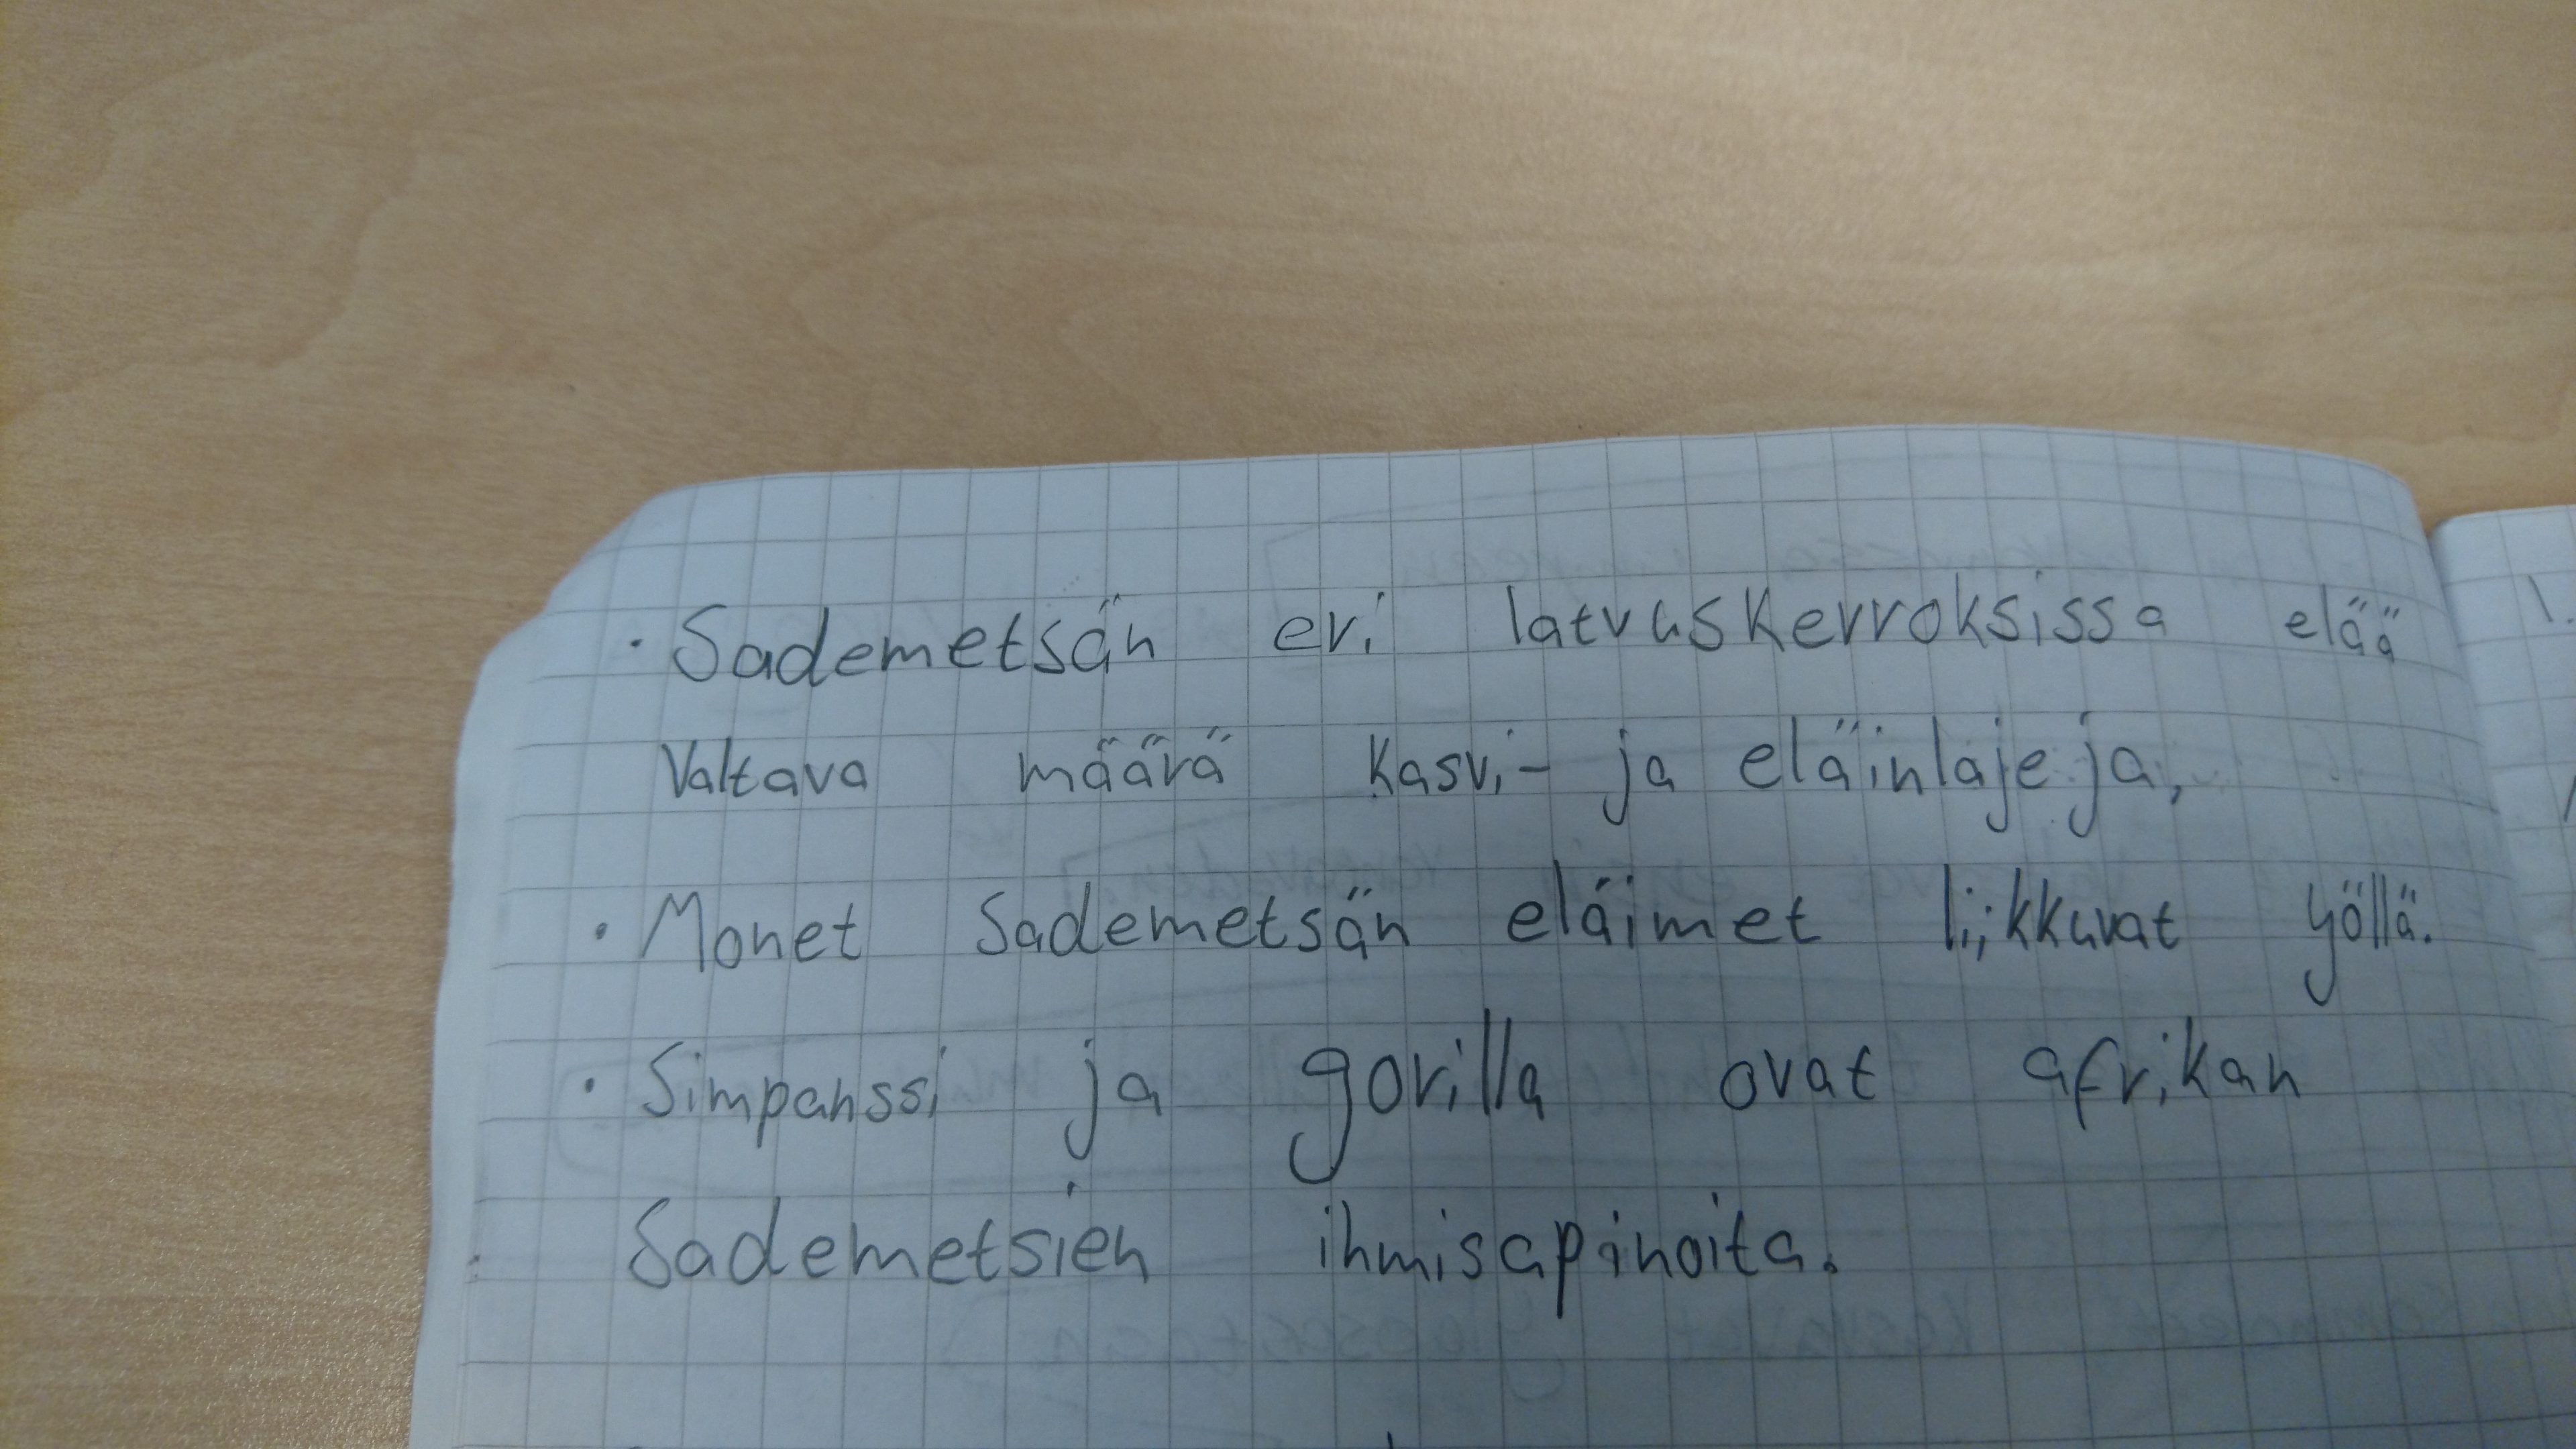 · Sademetsän eri latvuskerroksissa elää
Valtava määrä kasvi- ja eläinlajeja,
· Monet Sademetsän eläimet liikkuvat yöllä.
· Simpanssi ja gorilla ovat afrikan
Sademetsien ihmisapinoita.